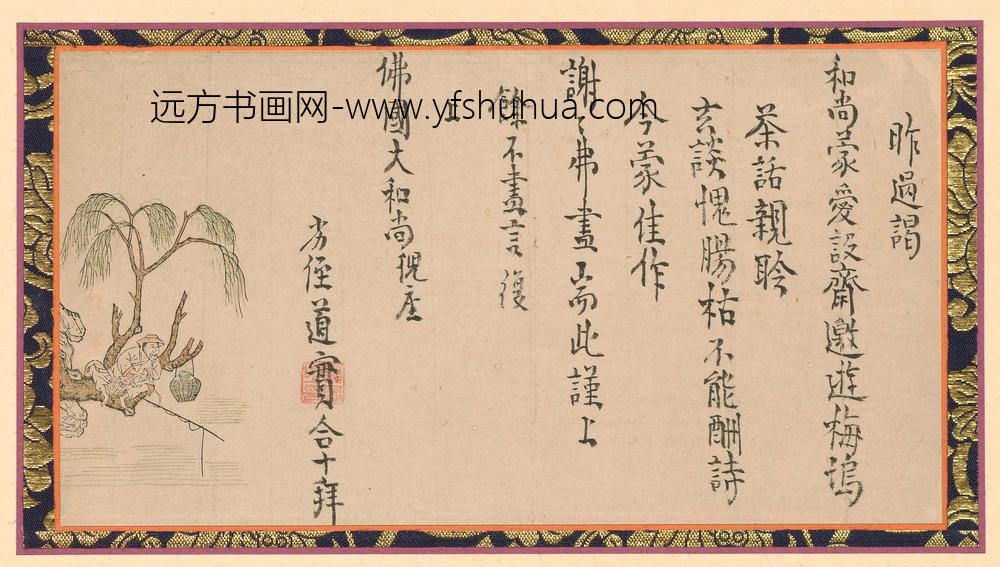 昨過謁
和尚蒙愛設齋邀遊梅塢
茶話親聆
玄談愧腸枯不能酬詩
今蒙佳作
謝〻弗盡耑此謹上
餘不盡言復
上
佛國大和尚猊座
劣侄道實合十拜
远方书画网-www.yfshuhua.com